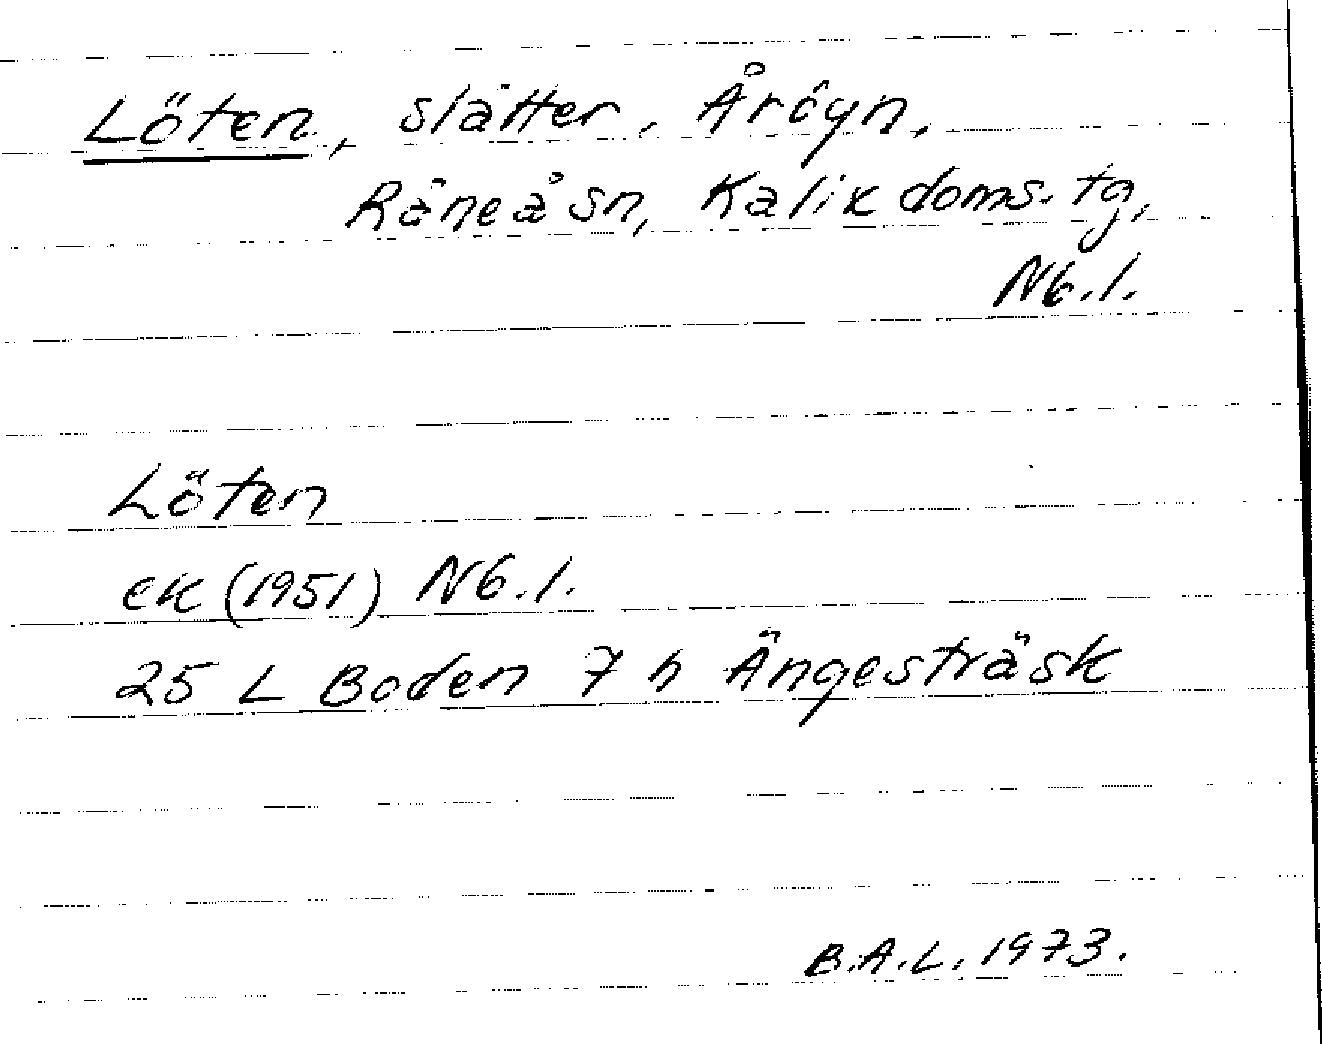 Löten, slåtter, Åröyn,
Råneå sn, Kalix doms. tg,
Nb.l.
Löten
ek (1951) Nb.l.
25 L Boden 7 h Ängesträsk
B.A.L. 1973.